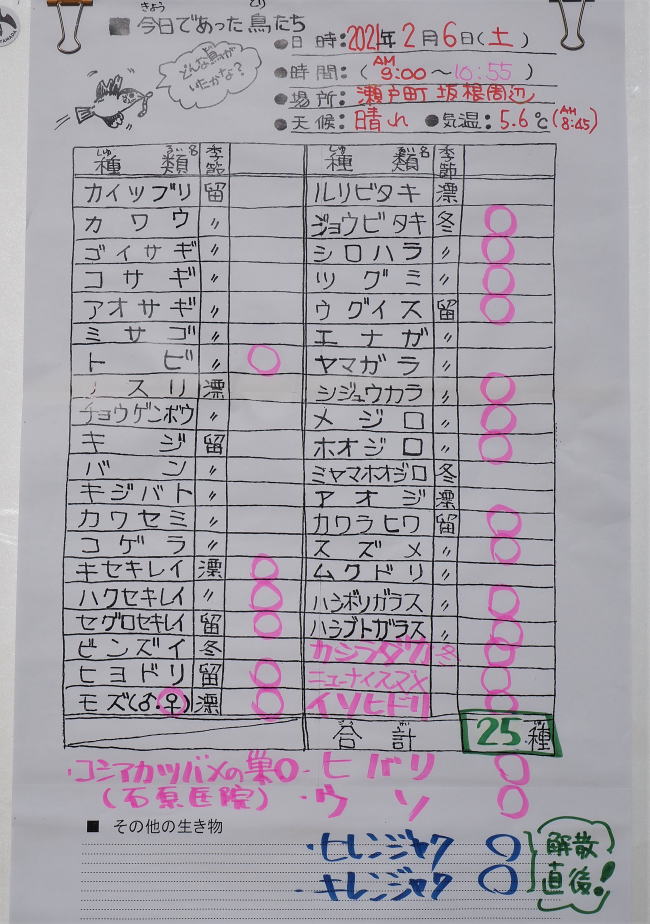 ■ 今日であった鳥たち
きょう とり
どんな鳥が
いたかな?
●日時:2021年2月6日(土)
●時間:(AM 9:00~10:55)
●場所:瀬戸町 坂根周辺
●天候:晴れ ●気温:5.6℃(AM 8:45)
種類名 季節 種類名 季節
カイツブリ 留 ルリビタキ 漂
カワウ 〃 ジョウビタキ 冬 ○
ゴイサギ 〃 シロハラ 〃 ○
コサギ 〃 ツグミ 〃 ○
アオサギ 〃 ウグイス 留 ○
ミサゴ 〃 エナガ 〃
トビ 〃 ○ ヤマガラ 〃
スリ 漂 シジュウカラ 〃 ○
チョウゲンボウ 〃 メジロ 〃 ○
キジ 留 ホオジロ 〃 ○
バン 〃 ミヤマホオジロ 冬
キジバト 〃 アオジ 漂
カワセミ 〃 カワラヒワ 留 ○
コゲラ 〃 スズメ 〃 ○
キセキレイ 漂 ○ ムクドリ 〃
ハクセキレイ 〃 ○ ハシボソガラス 〃 ○
セグロセキレイ 留 ○ ハシブトガラス 〃 ○
ビンズイ 冬 カシラダカ 冬 ○
ヒヨドリ 留 ○ ニュウナイスズメ ○
モズ(♂.♀) 漂 ○ イソヒドリ ○
合計 25種
・コシアカツバメの巣○ ・ヒバリ ○
(石原医院) ・ウソ ○
■ その他の生き物
・ヒレンジャク ○
・キレンジャク ○
解散
直後!